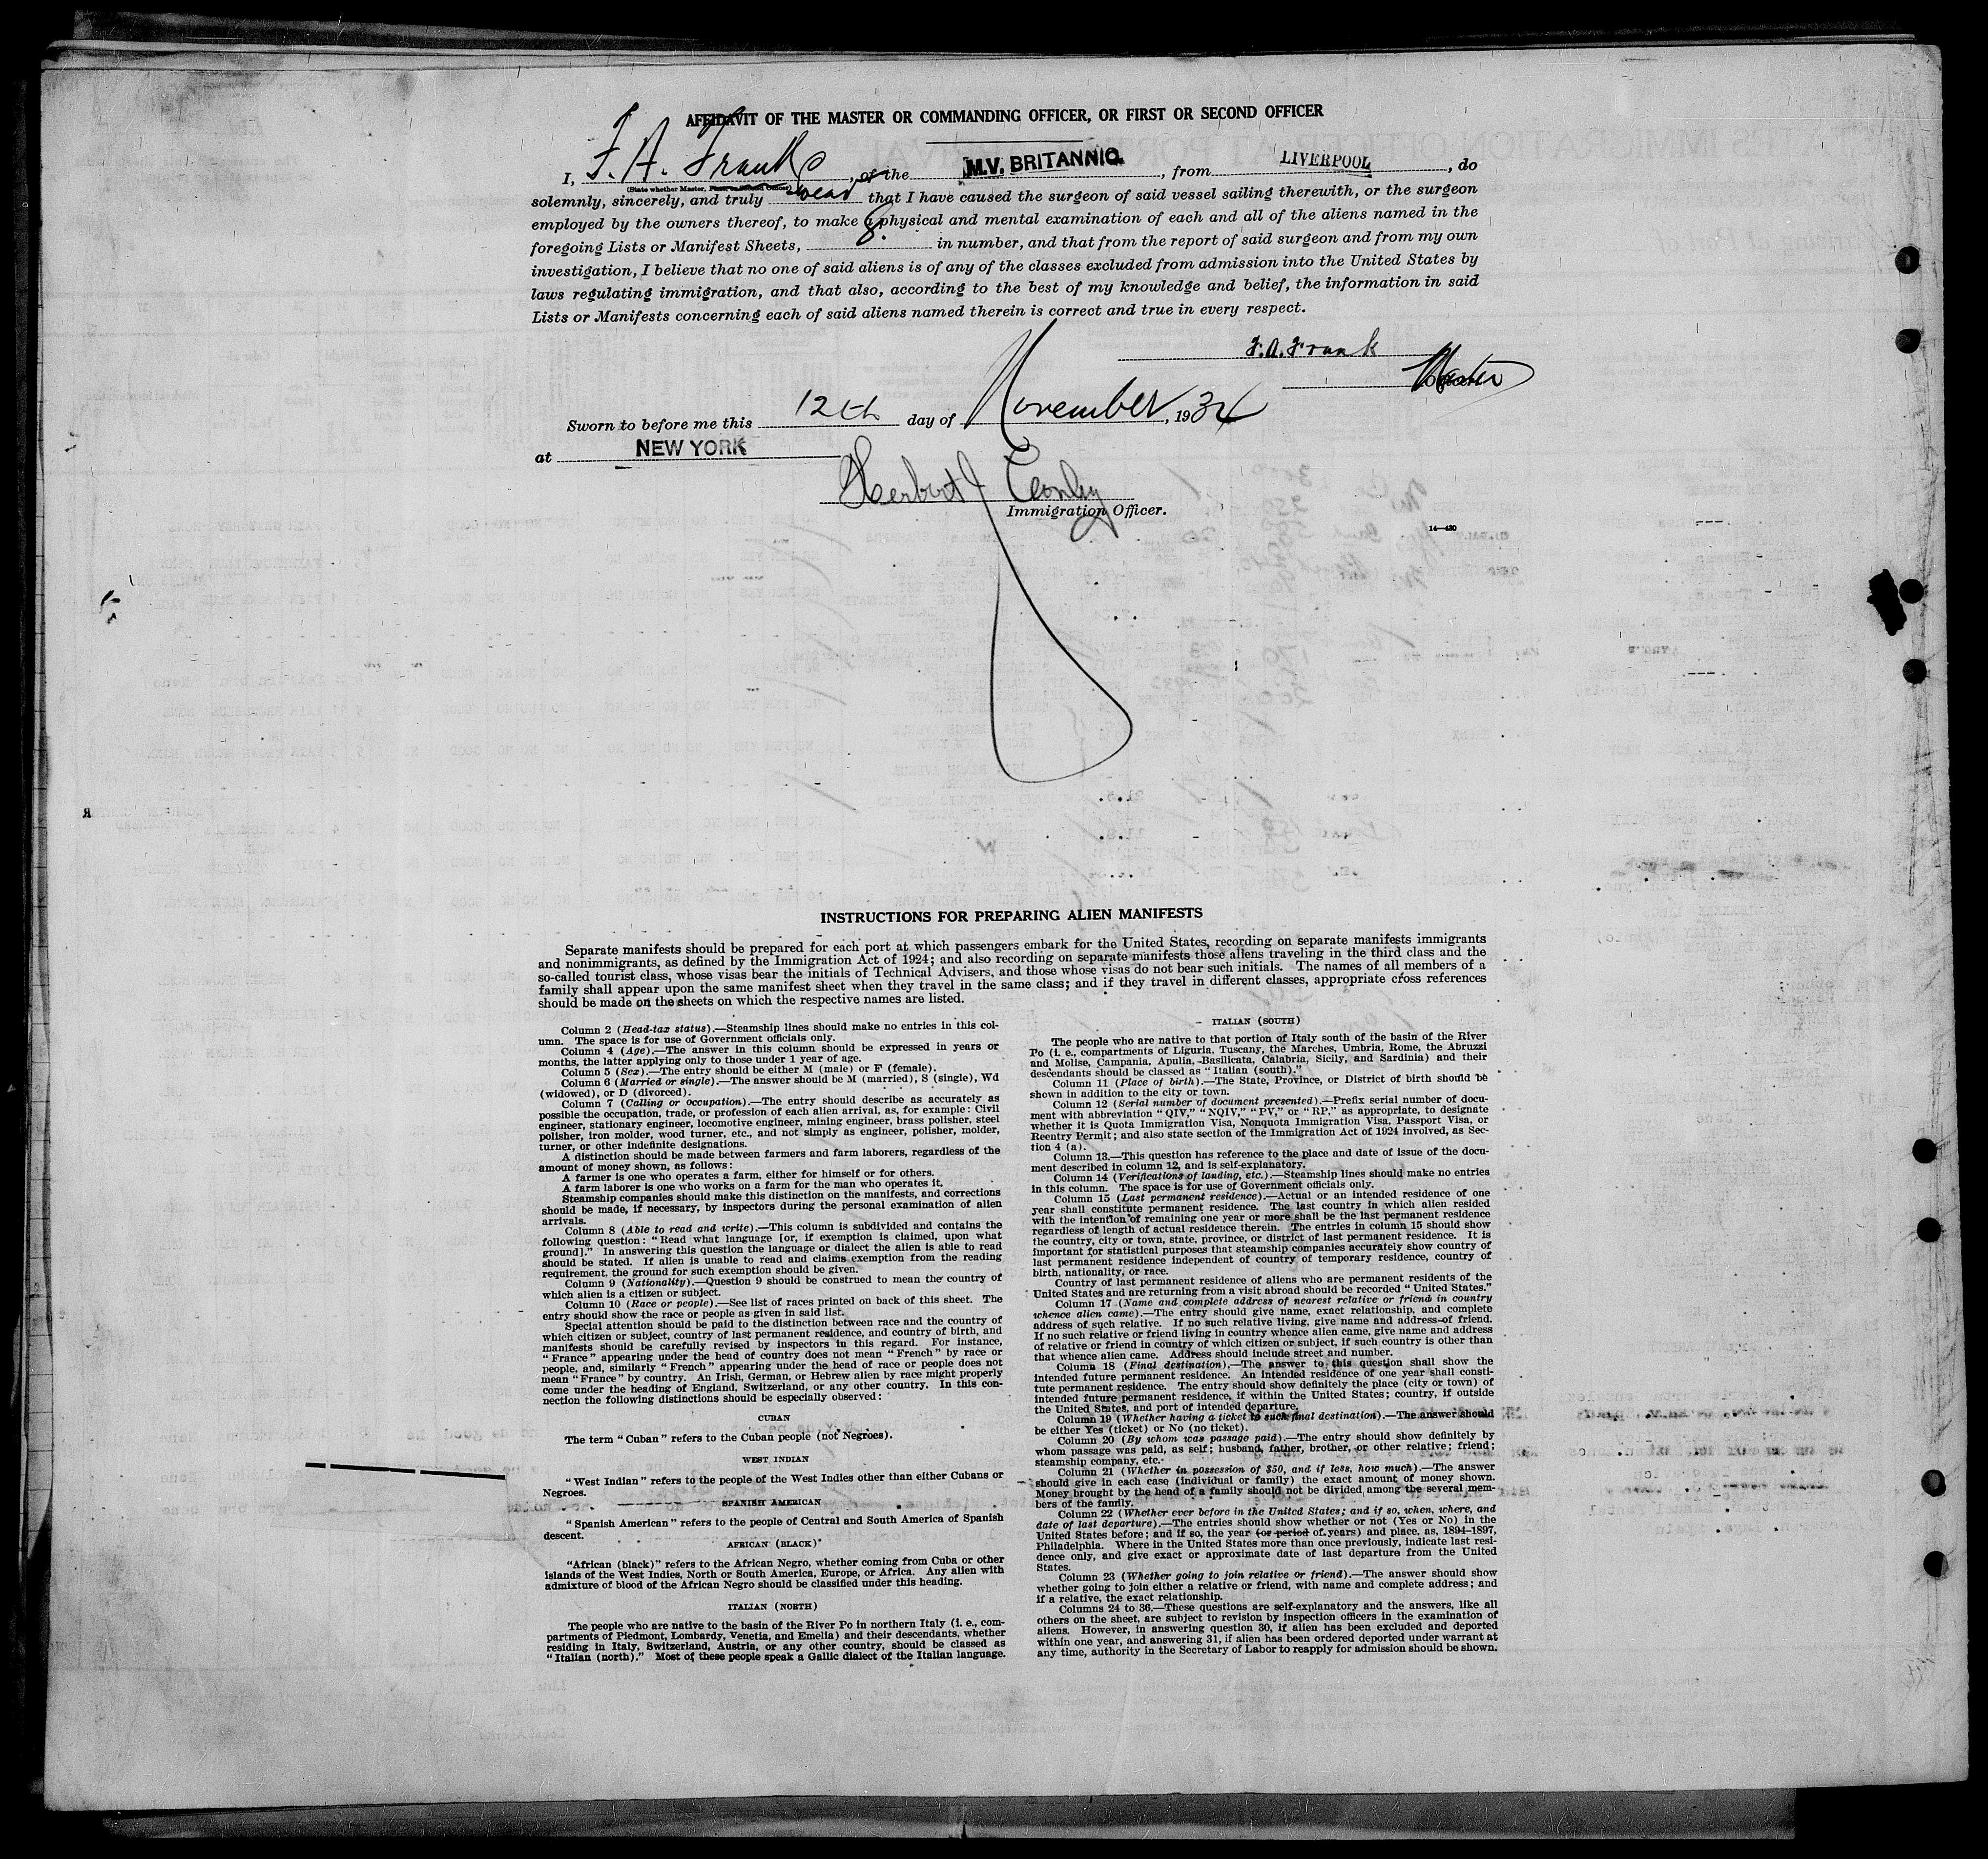 AFFIDAVIT OF THE MASTER OR COMMANDING OFFICER, OR FIRST OR SECOND OFFICER
I, F. A. Frank, of the M.V. BRITANNIC, from LIVERPOOL, do
(State whether Master, First, or Second Officer)
solemnly, sincerely, and truly swear that I have caused the surgeon of said vessel sailing therewith, or the surgeon
employed by the owners thereof, to make a physical and mental examination of each and all of the aliens named in the
foregoing Lists or Manifest Sheets, 8. in number, and that from the report of said surgeon and from my own
investigation, I believe that no one of said aliens is of any of the classes excluded from admission into the United States by
laws regulating immigration, and that also, according to the best of my knowledge and belief, the information in said
Lists or Manifests concerning each of said aliens named therein is correct and true in every respect.
F.A. Frank
Master
Sworn to before me this 12th day of November, 1934
at NEW YORK
Herbert J
Immigration Officer.
14—420
INSTRUCTIONS FOR PREPARING ALIEN MANIFESTS
Separate manifests should be prepared for each port at which passengers embark for the United States, recording on separate manifests immigrants
and nonimmigrants, as defined by the Immigration Act of 1924; and also recording on separate manifests those aliens traveling in the third class and the
so-called tourist class, whose visas bear the initials of Technical Advisers, and those whose visas do not bear such initials. The names of all members of a
family shall appear upon the same manifest sheet when they travel in the same class; and if they travel in different classes, appropriate cross references
should be made on the sheets on which the respective names are listed.
Column 2 (Head-tax status).—Steamship lines should make no entries in this col-
umn. The space is for use of Government officials only.
Column 4 (Age).—The answer in this column should be expressed in years or
months, the latter applying only to those under 1 year of age.
Column 5 (Sex).—The entry should be either M (male) or F (female).
Column 6 (Married or single).—The answer should be M (married), S (single), Wd
(widowed), or D (divorced).
Column 7 (Calling or occupation).—The entry should describe as accurately as
possible the occupation, trade, or profession of each alien arrival, as, for example: Civil
engineer, stationary engineer, locomotive engineer, mining engineer, brass polisher, steel
polisher, iron molder, wood turner, etc., and not simply as engineer, polisher, molder,
turner, or other indefinite designations.
A distinction should be made between farmers and farm laborers, regardless of the
amount of money shown, as follows:
A farmer is one who operates a farm, either for himself or for others.
A farm laborer is one who works on a farm for the man who operates it.
Steamship companies should make this distinction on the manifests, and corrections
should be made, if necessary, by inspectors during the personal examination of alien
arrivals.
Column 8 (Able to read and write).—This column is subdivided and contains the
following question: "Read what language [or, if exemption is claimed, upon what
ground]." In answering this question the language or dialect the alien is able to read
should be stated. If alien is unable to read and claims exemption from the reading
requirement, the ground for such exemption should be given.
Column 9 (Nationality).—Question 9 should be construed to mean the country of
which alien is a citizen or subject.
Column 10 (Race or people).—See list of races printed on back of this sheet. The
entry should show the race or people as given in said list.
Special attention should be paid to the distinction between race and the country of
which citizen or subject, country of last permanent residence, and country of birth, and
manifests should be carefully revised by inspectors in this regard. For instance,
"France" appearing under the head of country does not mean "French" by race or
people, and, similarly "French" appearing under the head of race or people does not
mean "France" by country. An Irish, German, or Hebrew alien by race might properly
come under the heading of England, Switzerland, or any other country. In this con-
nection the following distinctions should be especially observed:
CUBAN
The term "Cuban" refers to the Cuban people (not Negroes).
WEST INDIAN
"West Indian" refers to the people of the West Indies other than either Cubans or
Negroes.
SPANISH AMERICAN
"Spanish American" refers to the people of Central and South America of Spanish
descent.
AFRICAN (BLACK)
"African (black)" refers to the African Negro, whether coming from Cuba or other
islands of the West Indies, North or South America, Europe, or Africa. Any alien with
admixture of blood of the African Negro should be classified under this heading.
ITALIAN (NORTH)
The people who are native to the basin of the River Po in northern Italy (i. e., com-
partments of Piedmont, Lombardy, Venetia, and Emelia) and their descendants, whether
residing in Italy, Switzerland, Austria, or any other country, should be classed as
"Italian (north)." Most of these people speak a Gallic dialect of the Italian language.
ITALIAN (SOUTH)
The people who are native to that portion of Italy south of the basin of the River
Po (i. e., compartments of Liguria, Tuscany, the Marches, Umbria, Rome, the Abruzzi
and Molise, Campania, Apulia, Basilicata, Calabria, Sicily, and Sardinia) and their
descendants should be classed as "Italian (south)."
Column 11 (Place of birth).—The State, Province, or District of birth should be
shown in addition to the city or town.
Column 12 (Serial number of document presented).—Prefix serial number of docu-
ment with abbreviation "QIV," "NQIV," "PV," or "RP," as appropriate, to designate
whether it is Quota Immigration Visa, Nonquota Immigration Visa, Passport Visa, or
Reentry Permit; and also state section of the Immigration Act of 1924 involved, as Sec-
tion 4 (a).
Column 13.—This question has reference to the place and date of issue of the docu-
ment described in column 12, and is self-explanatory.
Column 14 (Verifications of landing, etc.).—Steamship lines should make no entries
in this column. The space is for use of Government officials only.
Column 15 (Last permanent residence).—Actual or an intended residence of one
year shall constitute permanent residence. The last country in which alien resided
with the intention of remaining one year or more shall be the last permanent residence
regardless of length of actual residence therein. The entries in column 15 should show
the country, city or town, state, province, or district of last permanent residence. It is
important for statistical purposes that steamship companies accurately show country of
last permanent residence independent of country of temporary residence, country of
birth, nationality, or race.
Country of last permanent residence of aliens who are permanent residents of the
United States and are returning from a visit abroad should be recorded "United States."
Column 17 (Name and complete address of nearest relative or friend in country
whence alien came).—The entry should give name, exact relationship, and complete
address of such relative. If no such relative living, give name and address of friend.
If no such relative or friend living in country whence alien came, give name and address
of relative or friend in country of which citizen or subject, if such country is other than
that whence alien came. Address should include street and number.
Column 18 (Final destination).—The answer to this question shall show the
intended future permanent residence. An intended residence of one year shall consti-
tute permanent residence. The entry should show definitely the place (city or town) of
intended future permanent residence, if within the United States; country, if outside
the United States, and port of intended departure.
Column 19 (Whether having a ticket to such final destination).—The answer should
be either Yes (ticket) or No (no ticket).
Column 20 (By whom was passage paid).—The entry should show definitely by
whom passage was paid, as self; husband, father, brother, or other relative; friend;
steamship company, etc.
Column 21 (Whether in possession of $50, and if less, how much).—The answer
should give in each case (individual or family) the exact amount of money shown.
Money brought by the head of a family should not be divided among the several mem-
bers of the family.
Column 22 (Whether ever before in the United States; and if so, when, where, and
date of last departure).—The entries should show whether or not (Yes or No) in the
United States before; and if so, the year (or period of years) and place, as, 1894–1897,
Philadelphia. Where in the United States more than once previously, indicate last resi-
dence only, and give exact or approximate date of last departure from the United
States.
Column 23 (Whether going to join relative or friend).—The answer should show
whether going to join either a relative or friend, with name and complete address; and
if a relative, the exact relationship.
Columns 24 to 36.—These questions are self-explanatory and the answers, like all
others on the sheet, are subject to revision by inspection officers in the examination of
aliens. However, in answering question 30, if alien has been excluded and deported
within one year, and answering 31, if alien has been ordered deported under warrant at
any time, authority in the Secretary of Labor to reapply for admission should be shown.